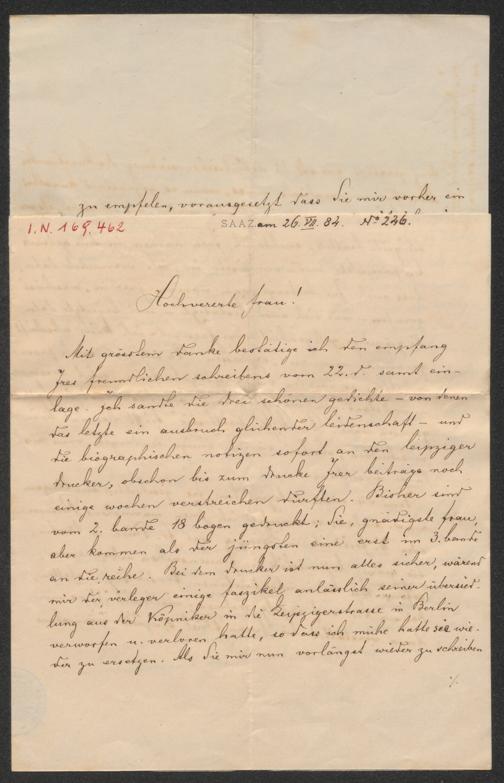 zu empfelen, vorausgesetzt dass Sie mir vorher ein
I.N. 169.462
SAAZ am 26. VII. 84. No 246.
Hochvererte frau!
Mit grösstem danke bestätige ich den empfang
Jres freundlichen schreibens vom 22. d samt ein-
lage. Jch sandte die drei schönen gedichte – von denen
das letzte ein ausbruch glühender leidenschaft – und
die biographischen notizen sofort an den leipziger
drucker, obschon bis zum drucke Jrer beiträge noch
einige wochen verstreichen dürften. Bisher sind
vom 2. bande 18 bogen gedruckt; Sie, gnädigste frau,
aber kommen als der jüngsten eine erst im 3. bande
an die reihe. Bei dem drucker ist nun alles sicher, wärend
mir der verleger einige faszikel anlässlich seiner übersied-
lung aus der Köpniker in die Leipzigerstrasse in Berlin
verworfen u. verloren hatte, so dass ich mühe hatte sie wie-
der zu ersetzen. Als Sie mir nun vorlängst wieder zu schreiben
./.